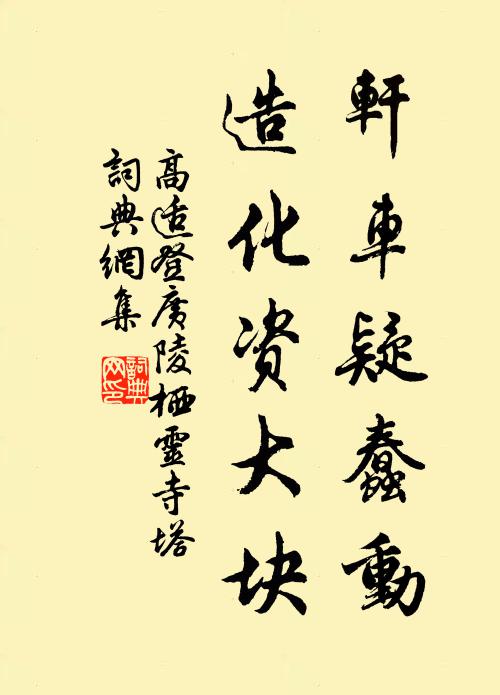 軒車疑蠢動
造化资大块
高适登廣陵栖靈寺塔
詞典網集
詞典
网印